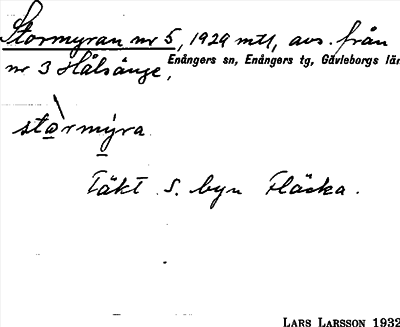 Stormyran nr 5, 1929 mtl, avs. från
nr 3 Hålsänge,
Enångers sn, Enångers tg, Gävleborgs län
stormýra
Täkt S. byn Fläska.
LARS LARSSON 1932